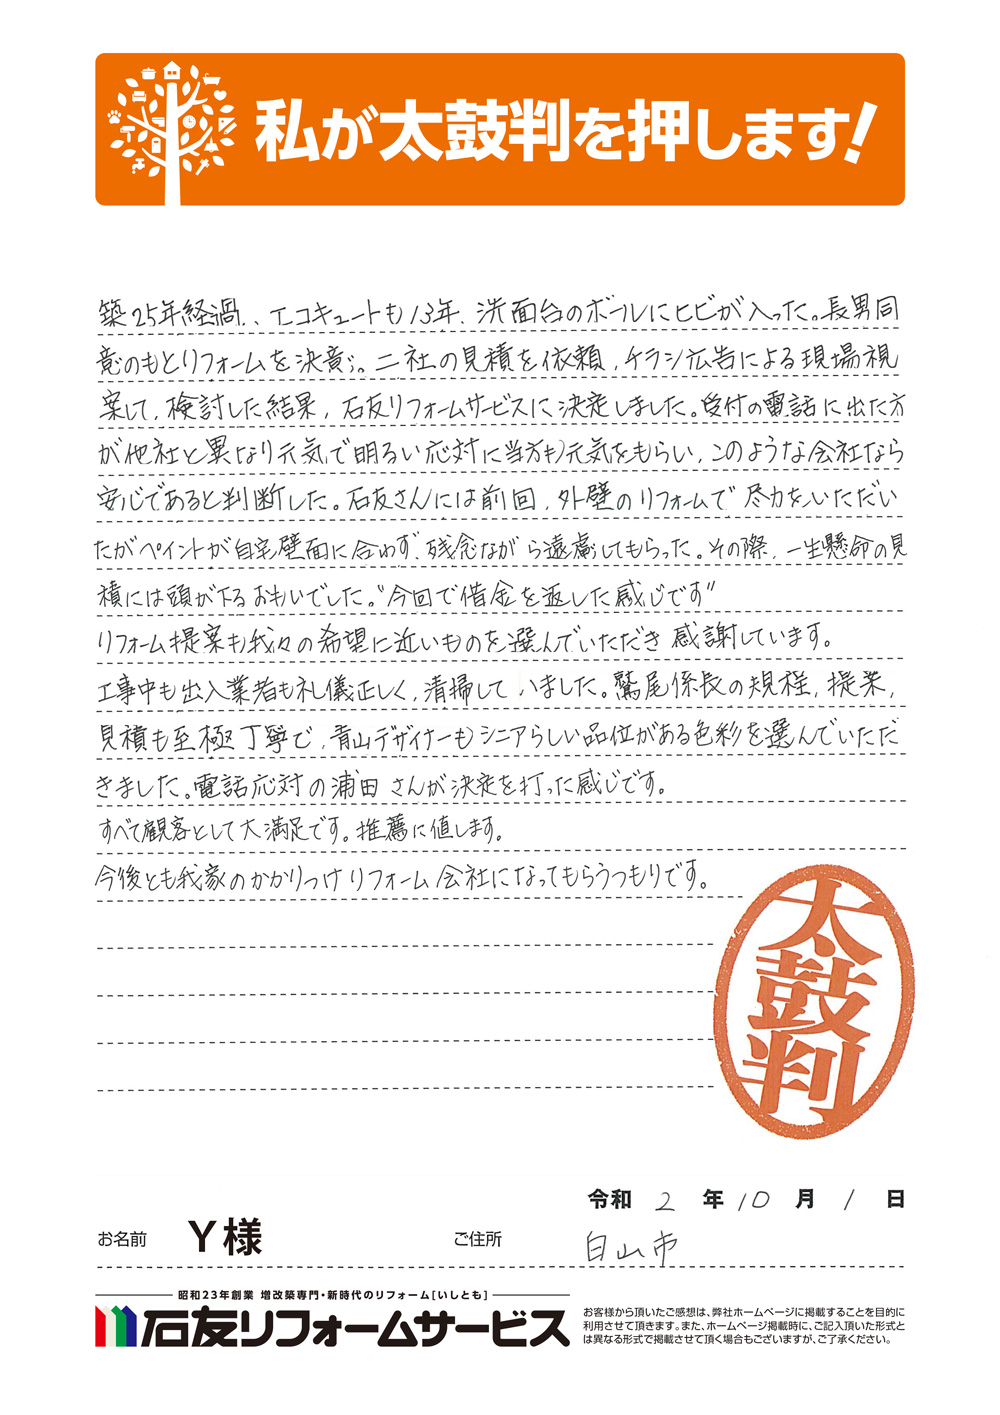 私が太鼓判を押します!
築25年経過、、エコキュートも13年、洗面台のボールにヒビが入った。長男同
意のもとリフォームを決意。二社の見積を依頼、チラシ広告による現場視
案して、検討した結果、石友リフォームサービスに決定しました。受付の電話に出た方
が他社と異なり元気で明るい応対に当方も元気をもらい、このような会社なら
安心であると判断した。石友さんには前回、外壁のリフォームで尽力をいただい
たがペイントが自宅壁面に合わず、残念ながら遠慮してもらった。その際、一生懸命の見
積には頭が下るおもいでした。"今回で借金を返した感じです"
リフォーム提案も我々の希望に近いものを選んでいただき感謝しています。
工事中も出入業者も礼儀正しく、清掃していました。鷲尾係長の規程、提案、
見積も至極丁寧で、青山デザイナーもシニアらしい品位がある色彩を選んでいただ
きました。電話応対の浦田さんが決定を打った感じです。
すべて顧客として大満足です。推薦に値します。
今後とも我家のかかりつけリフォーム会社になってもらうつもりです。
太鼓判
令和 2 年 10 月 1 日
お名前 Y様 ご住所 白山市
昭和23年創業 増改築専門・新時代のリフォーム[いしとも]
石友リフォームサービス
お客様から頂いたご感想は、弊社ホームページに掲載することを目的に
利用させて頂きます。また、ホームページ掲載時に、ご記入頂いた形式と
は異なる形式で掲載させて頂く場合もございますが、ご了承ください。